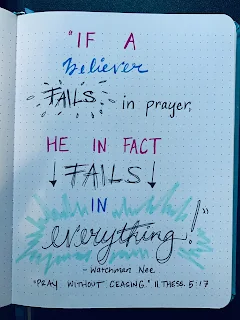 "IF A
believer
FAILS in prayer,
HE IN FACT
FAILS
IN
everything!"
- Watchman Nee
"PRAY WITHOUT CEASING." 11 THESS. 5:17